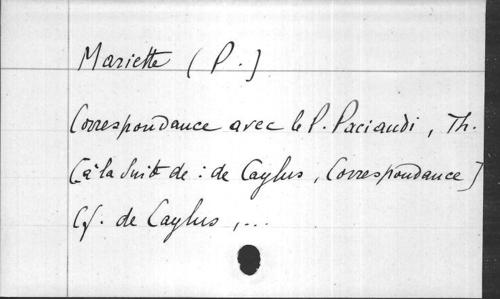 Mariette (P.)
Correspondance avec le P. Paciaudi, Th.
(à la suite de : de Caylus, Correspondance)
Cf. de Caylus,...